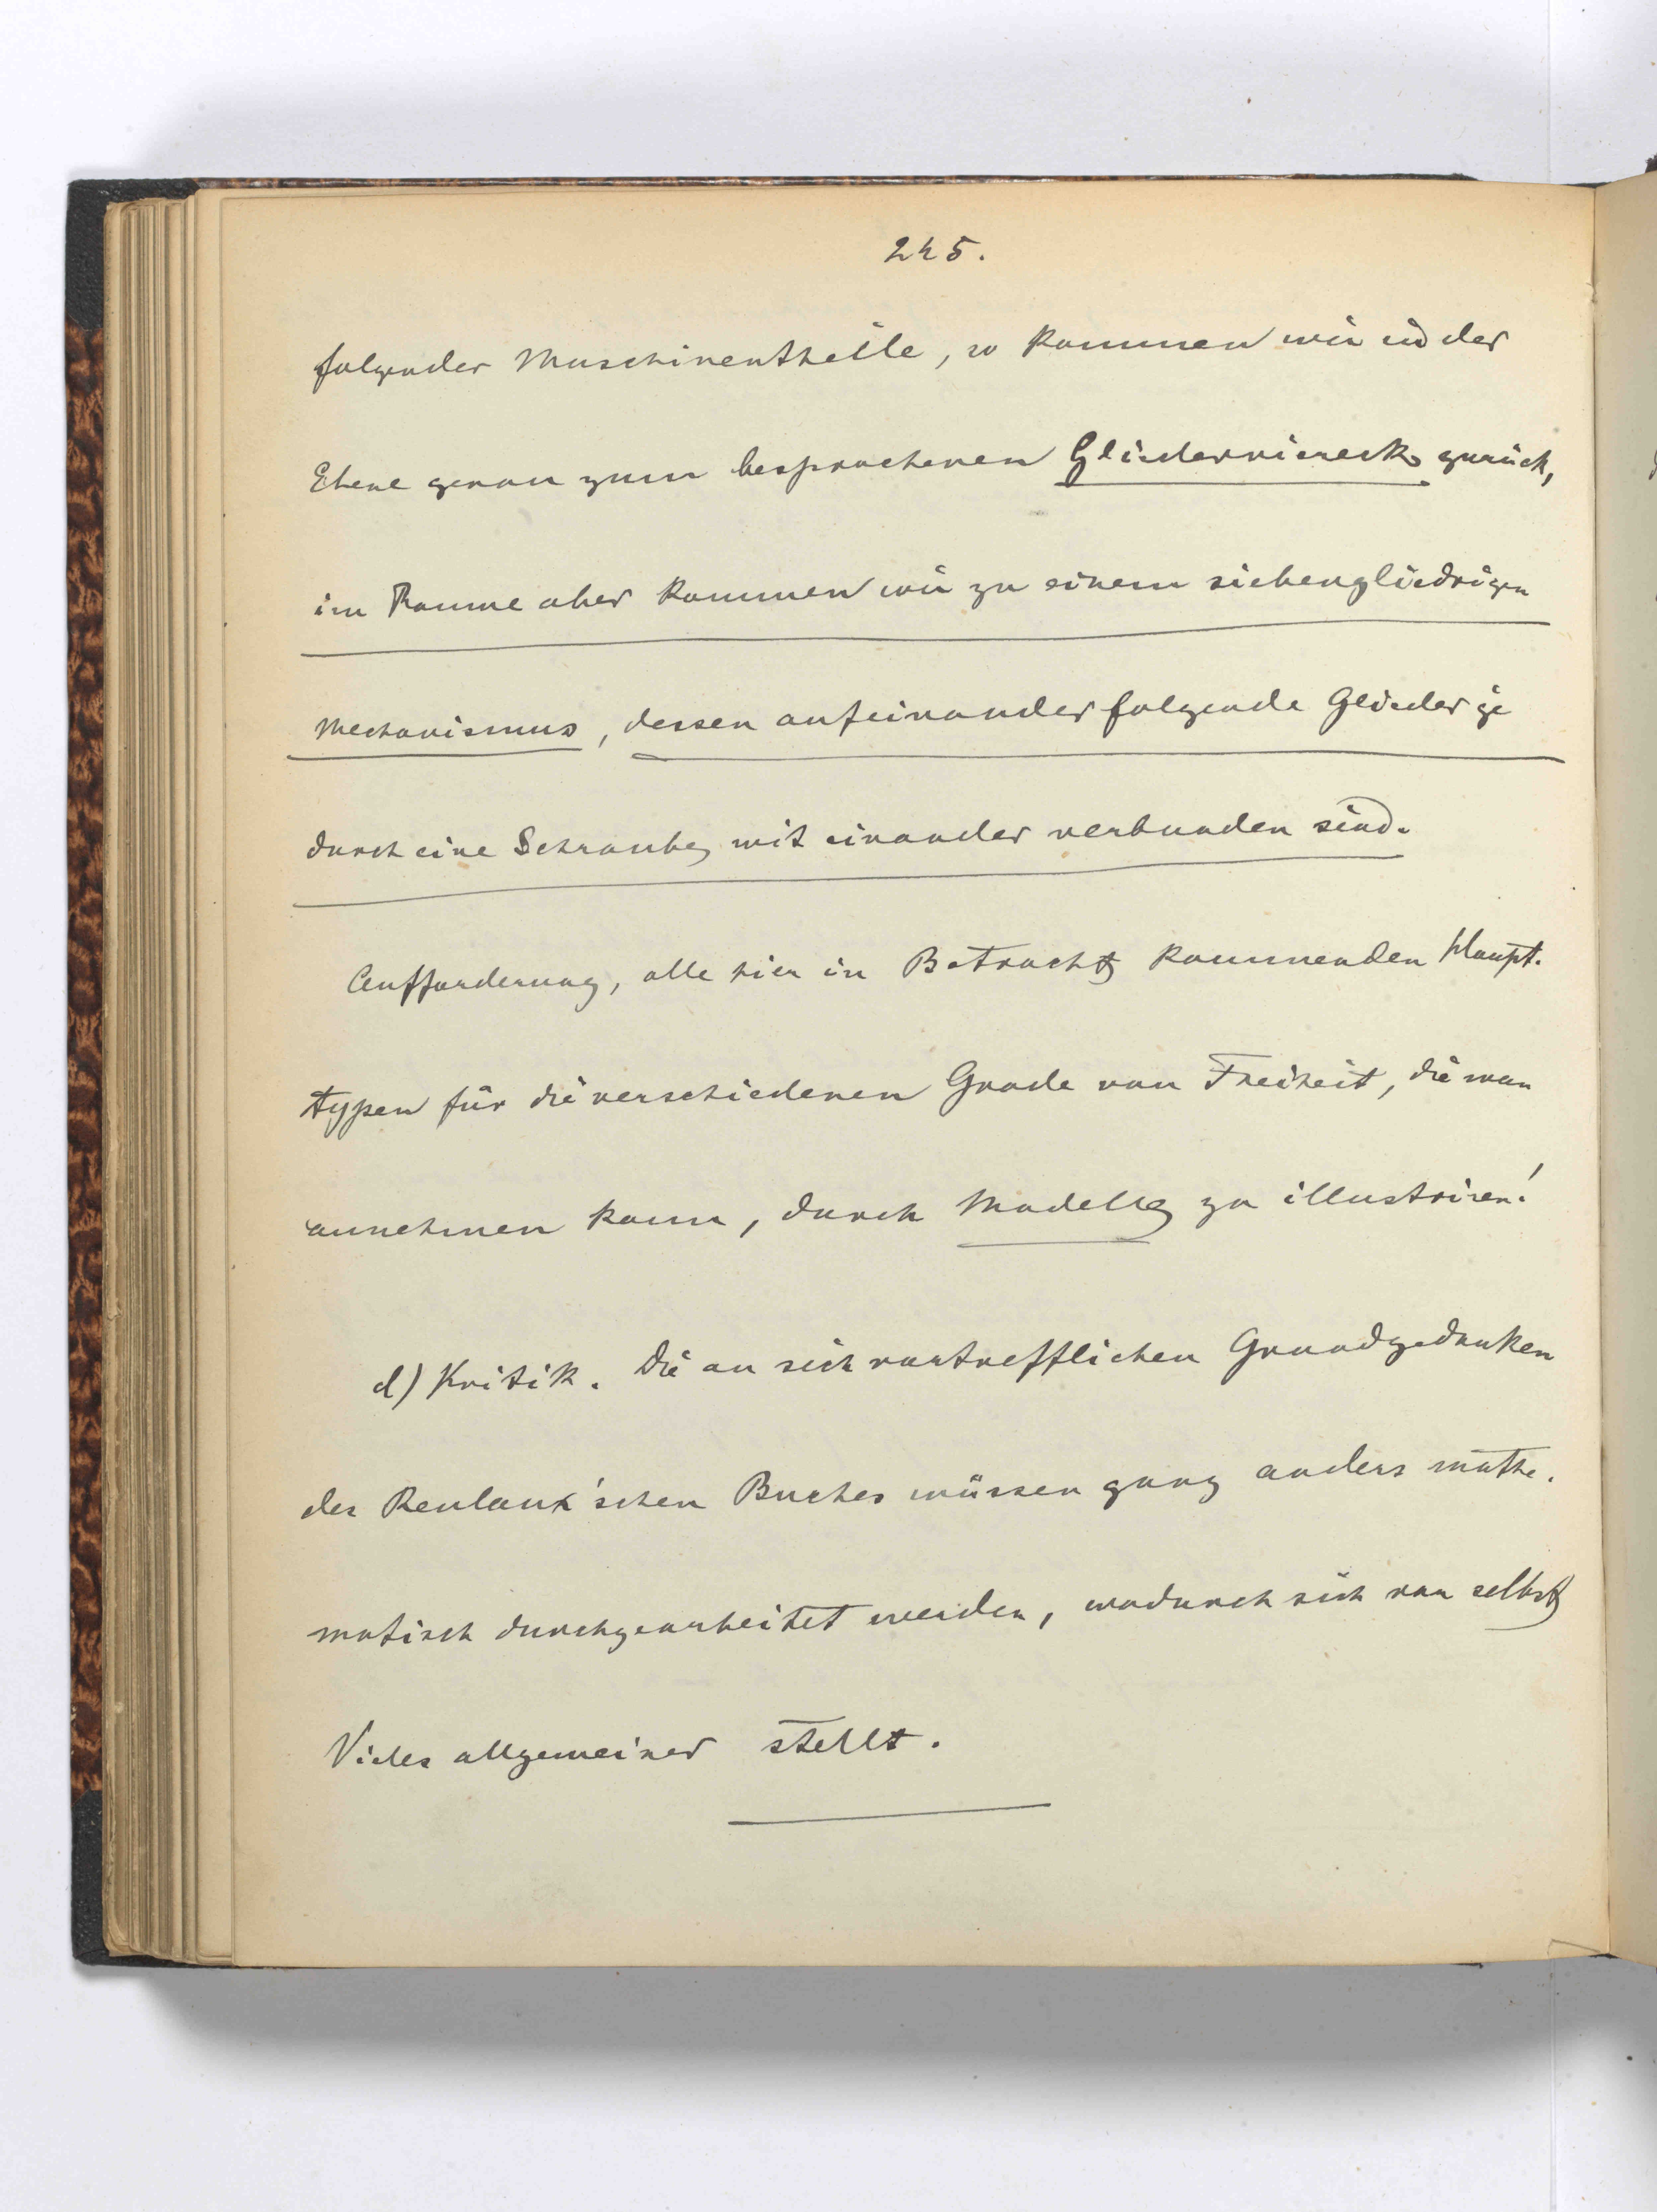 245.
folgender Maschinentheile, so kommen wir in der
Ebene genau zum besprochenen Gliederviereck zurück,
im Raume aber kommen wir zu einem siebengliedrigen
Mechanismus, dessen aufeinander folgende Glieder je
durch eine Schraube mit einander verbunden sind.
Aufforderung, alle hier in Betracht kommenden Haupt-
typen für die verschiedenen Grade von Freiheit, die man
annehmen kann, durch Modelle zu illustriren!
d) Kritik. Die an sich vortrefflichen Grundgedanken
des Reulaux'schen Buches müssen ganz anders mathe-
matisch durchgearbeitet werden, wodurch sich von selbst
Vieles allgemeiner stellt.